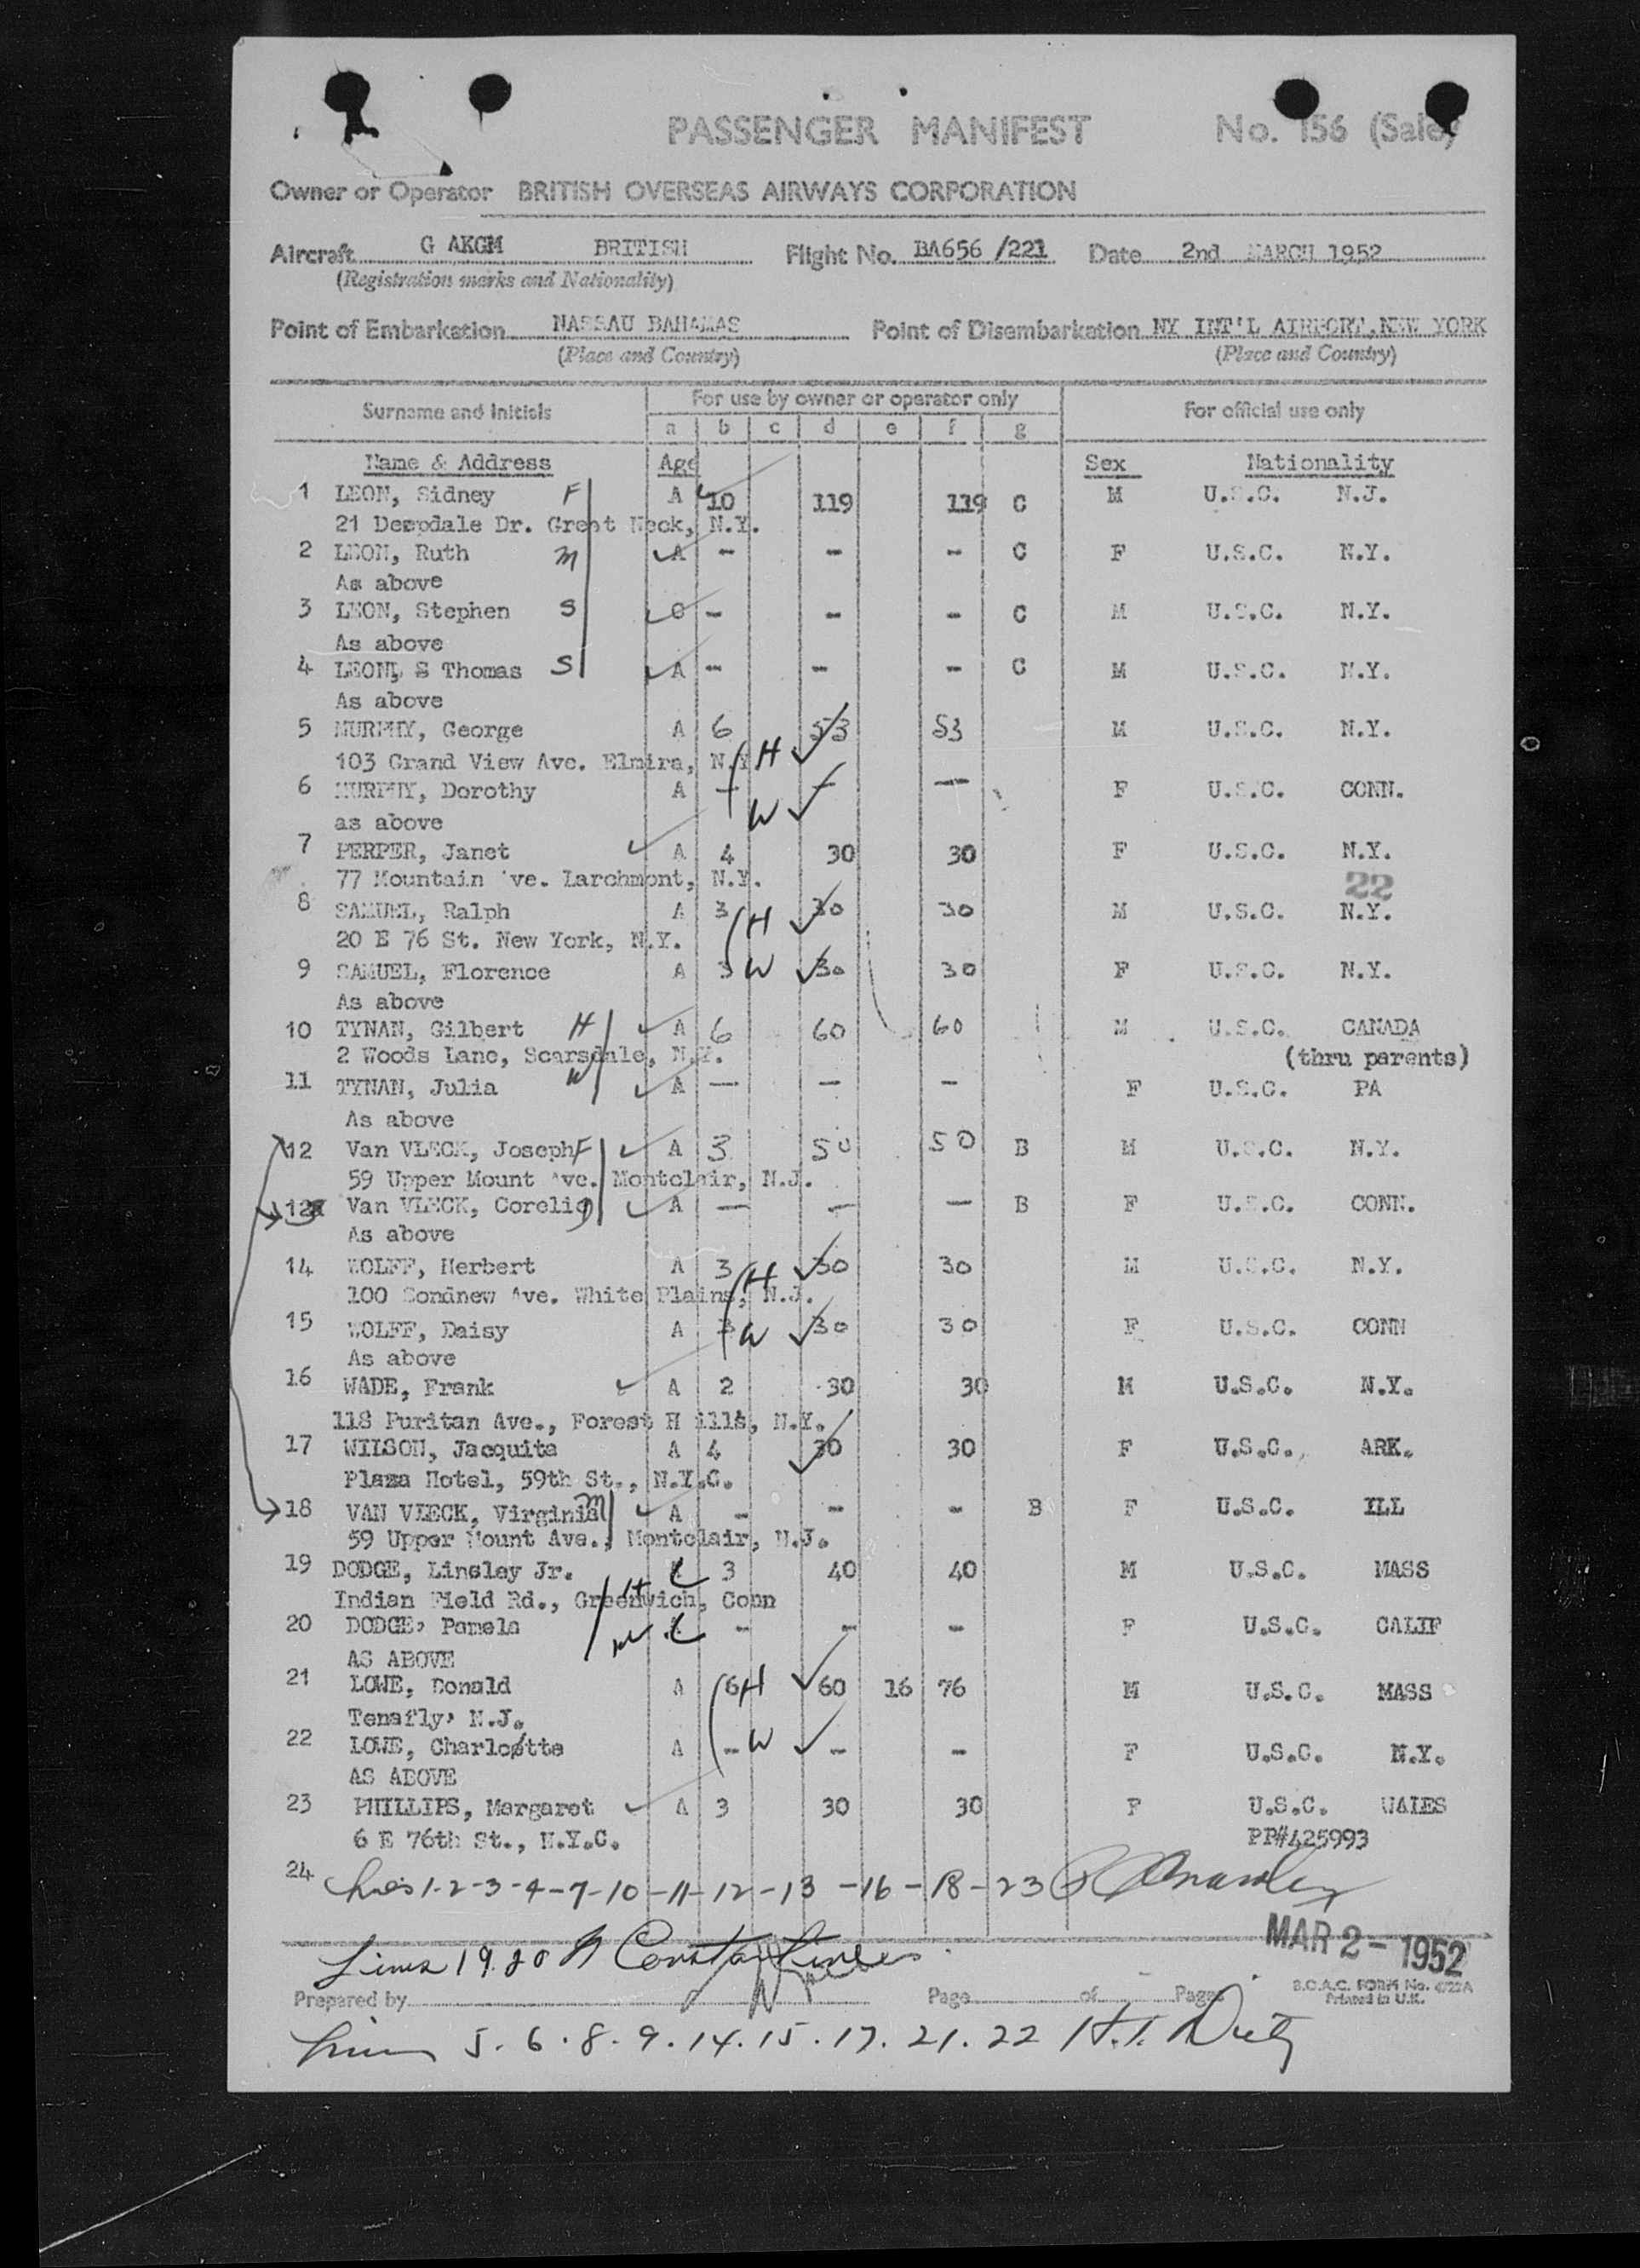 PASSENGER MANIFEST No. 156 (Sale)
Owner or Operator BRITISH OVERSEAS AIRWAYS CORPORATION
Aircraft G AKGM BRITISH Flight No. BA656 /221 Date 2nd MARCH 1952
(Registration marks and Nationality)
Point of Embarkation NASSAU BAHAMAS Point of Disembarkation NY INT'L AIRPORT,NEW YORK
(Place and Country) (Place and Country)
Surname and Initials For use by owner or operator only For official use only
a b c d e f g
Name & Address Age Sex Nationality
1 LEON, Sidney F A 10 119 119 C M U.S.C. N.J.
21 Deepdale Dr. Great Neck, N.Y.
2 LEON, Ruth M A - - - C F U.S.C. N.Y.
As above
3 LEON, Stephen S C - - - C M U.S.C. N.Y.
As above
4 LEON, S Thomas S A - - - C M U.S.C. N.Y.
As above
5 MURPHY, George A 6 53 53 M U.S.C. N.Y.
103 Grand View Ave. Elmira, N.Y H
6 MURPHY, Dorothy A - - - F U.S.C. CONN.
as above W
7 PERPER, Janet A 4 30 30 F U.S.C. N.Y.
77 Mountain 've. Larchmont, N.Y. 22
8 SAMUEL, Ralph A 3 H 30 30 M U.S.C. N.Y.
20 E 76 St. New York, N.Y.
9 SAMUEL, Florence A 3 W 30 30 F U.S.C. N.Y.
As above
10 TYNAN, Gilbert H A 6 60 60 M U.S.C. CANADA
2 Woods Lane, Scarsdale, N.Y. (thru parents)
11 TYNAN, Julia W A - - - F U.S.C. PA
As above
12 Van VLECK, Joseph F A 3 50 50 B M U.S.C. N.Y.
59 Upper Mount Ave. Montclair, N.J.
12a Van VLECK, Corelia A - - - B F U.S.C. CONN.
As above
14 WOLFF, Herbert A 3 H 30 30 M U.S.C. N.Y.
100 Sondnew Ave. White Plains, N.J.
15 WOLFF, Daisy A 3 W 30 30 F U.S.C. CONN
As above
16 WADE, Frank A 2 30 30 M U.S.C. N.Y.
118 Puritan Ave., Forest H ills, N.Y.
17 WILSON, Jacquita A 4 30 30 F U.S.C. ARK.
Plaza Hotel, 59th St., N.Y.C.
18 VAN VLECK, Virginia M A - - - B F U.S.C. ILL
59 Upper Mount Ave., Montclair, N.J.
19 DODGE, Linsley Jr. 3 40 40 M U.S.C. MASS
Indian Field Rd., Greenwich, Conn H
20 DODGE, Pamela W - - - F U.S.C. CALIF
AS ABOVE
21 LOWE, Donald A 6 H 60 16 76 M U.S.C. MASS
Tenafly, N.J.
22 LOWE, Charlotte A - W - - F U.S.C. N.Y.
AS ABOVE
23 PHILLIPS, Margaret A 3 30 30 F U.S.C. WALES
6 E 76th St., N.Y.C. PP#425993
24 1-2-3-4-7-10-11-12-13-16-18-23
MAR 2 - 1952
Lines 19.20
Prepared by Page of Pages B.O.A.C. FORM No. Printed in U.K.
Lines 5.6.8.9.14.15.17.21.22 H.T.